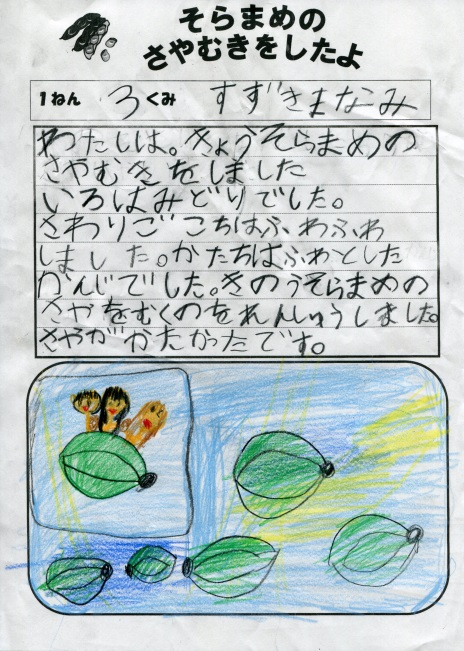 そらまめの
さやむきをしたよ
1ねん 3くみ すずきまなみ
わたしは。きょうそらまめの
さやむきをしました
いろはみどりでした。
さわりごこちはふわふわ
しました。かたちはふわとした
かんじでした。きのうそらまめの
さやをむくのをれんしゅうしました。
さやがかたかったです。